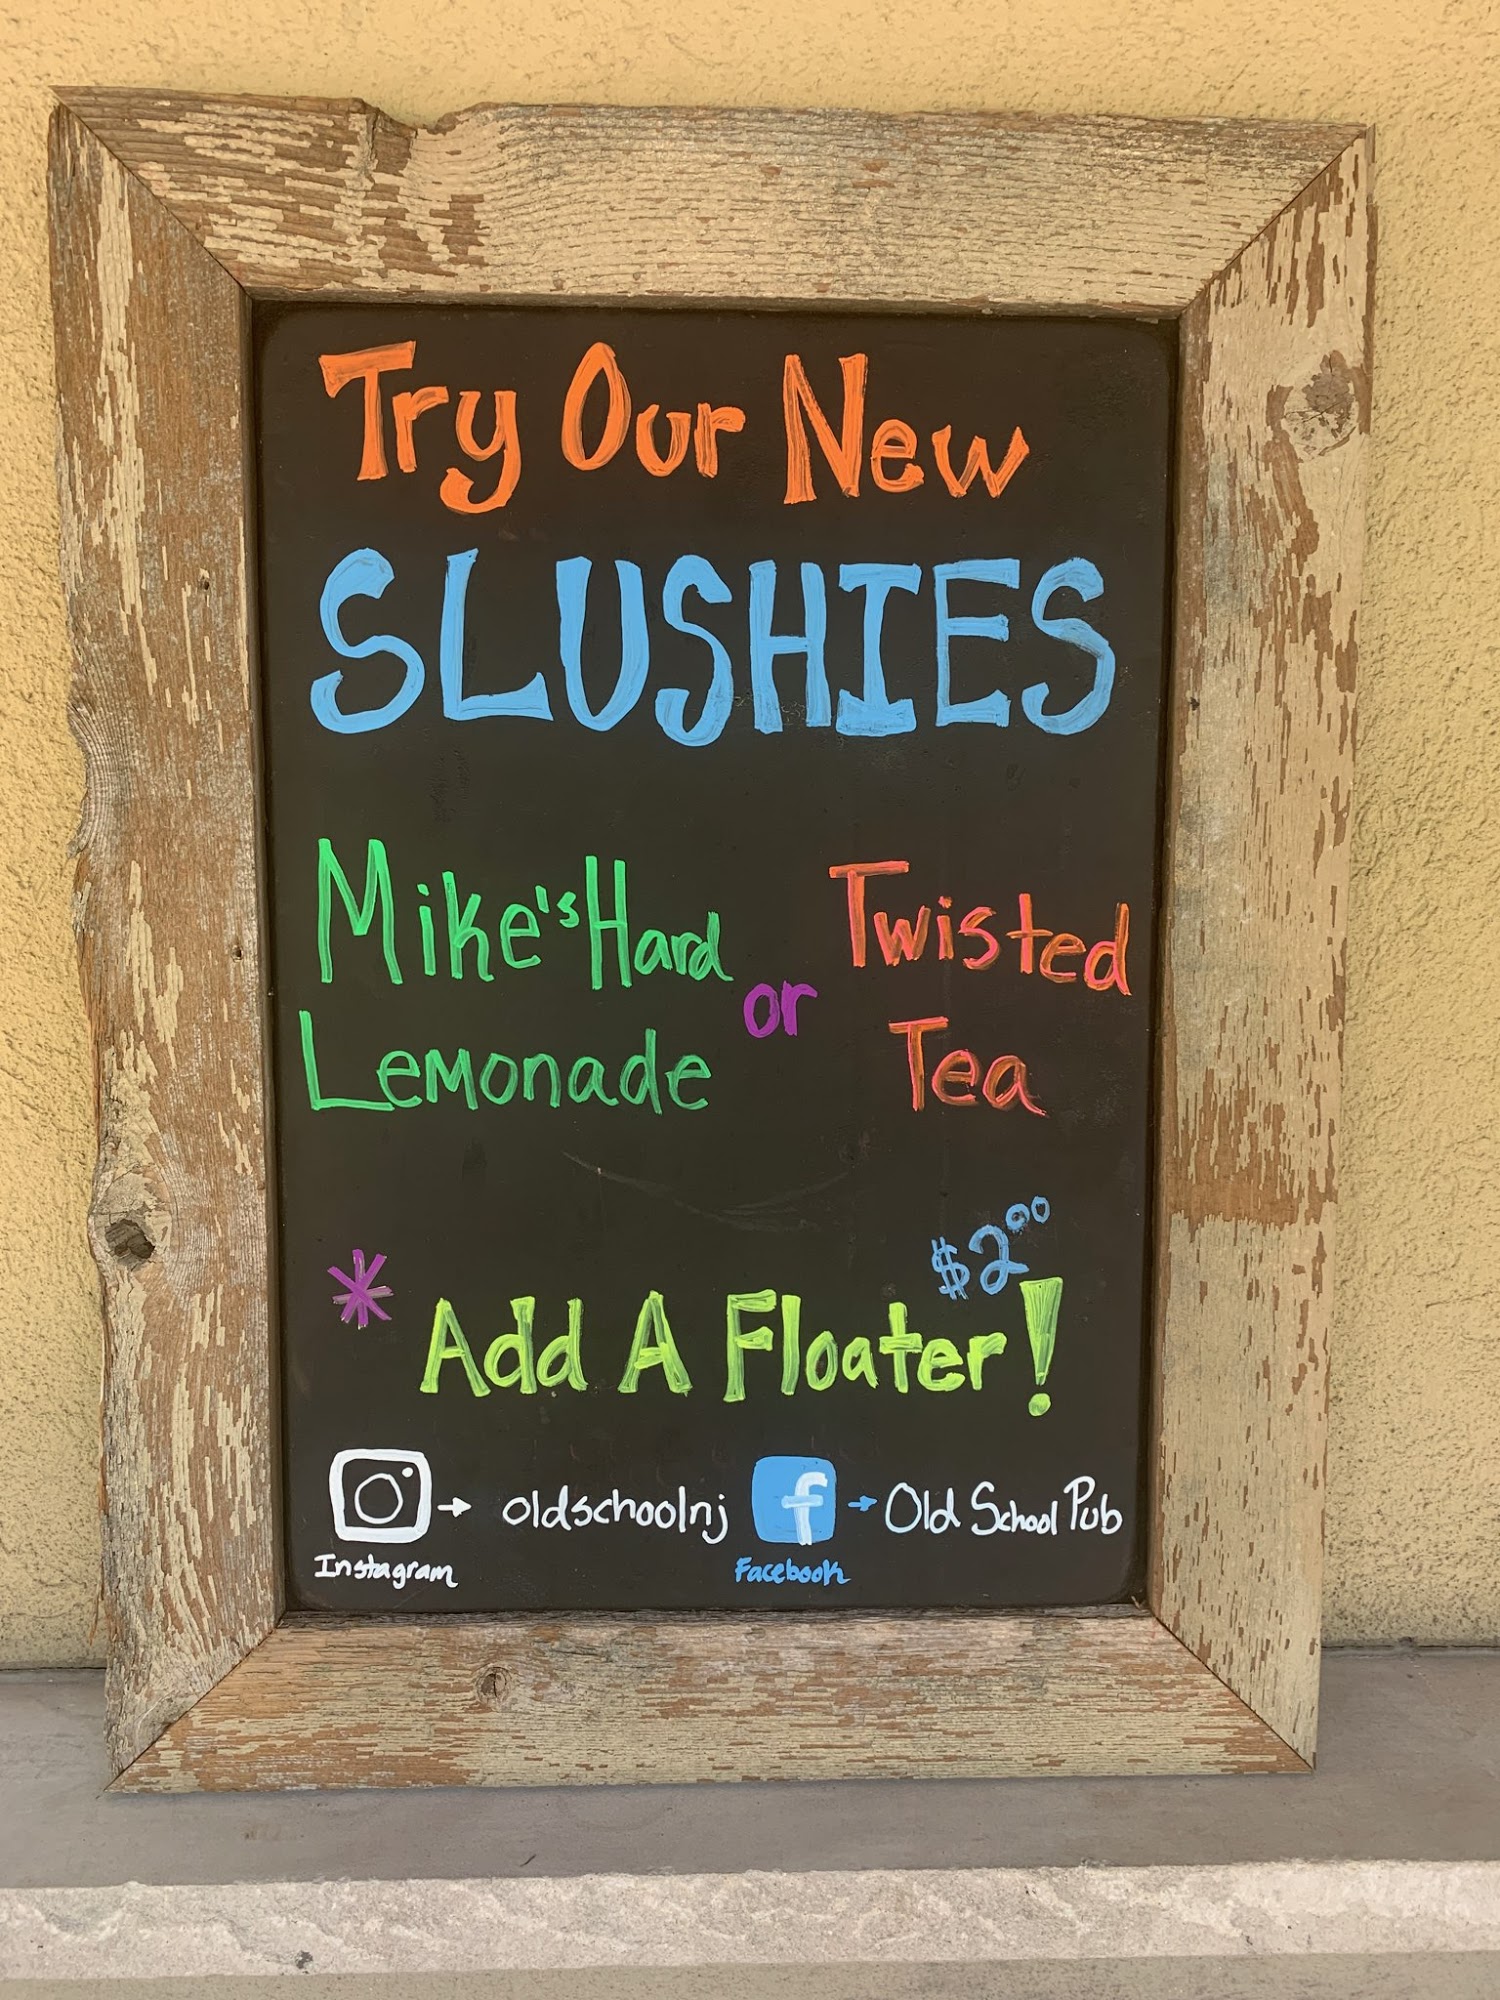 Try Our New
SLUSHIES
Mike's Hard
Lemonade
or
Twisted
Tea
$2.00
* Add A Floater!
→ oldschoolnj
Instagram
f → Old School Pub
Facebook